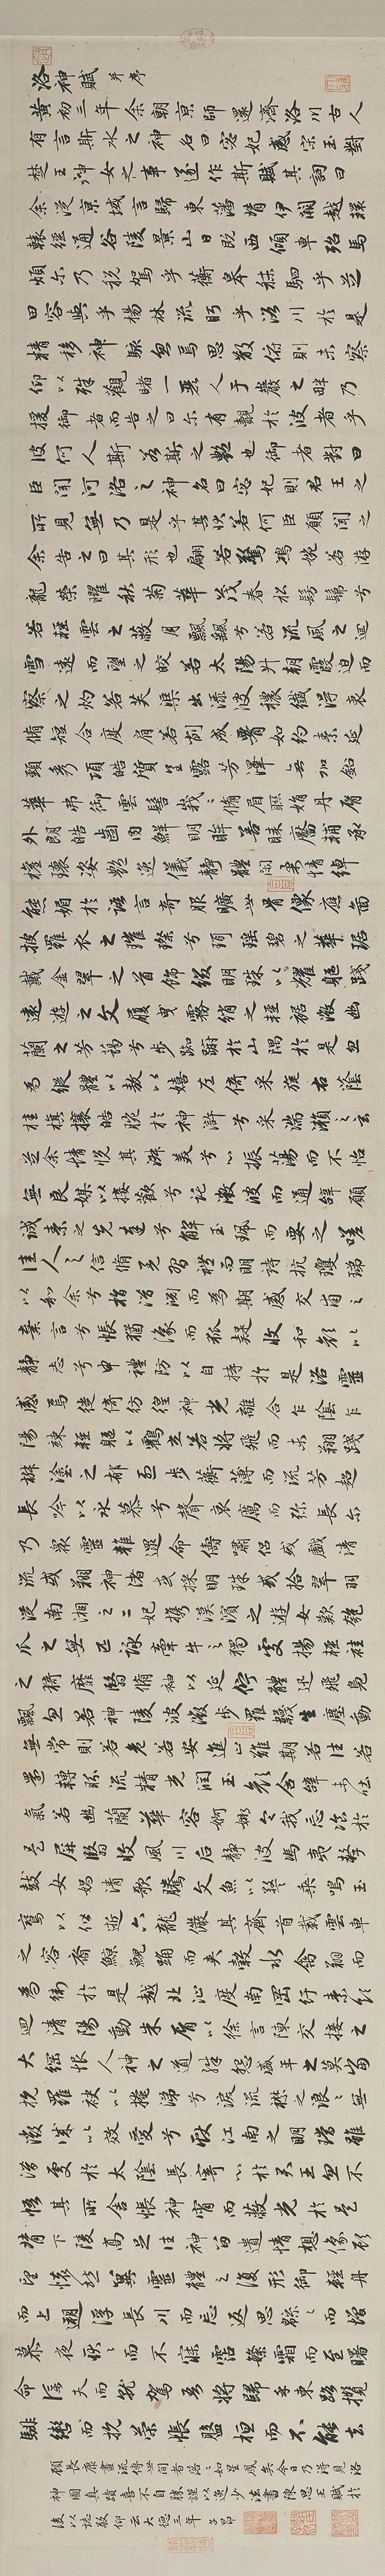 洛神賦 并序
黃初三年余朝京師還濟洛川古人
有言斯水之神名曰宓妃感宋玉對
楚王神女之事遂作斯賦其詞曰
余從京域言歸東藩背伊闕越轘
轅經通谷陵景山日既西傾車殆馬
煩尔乃稅駕乎蘅皋秣駟乎芝
田容與乎楊林流眄乎洛川於是
精移神駭忽焉思散俯則未察
仰以殊觀睹一麗人于巖之畔乃
援御者而告之曰尔有覿於彼者乎
彼何人斯若斯之艷也御者對曰
臣聞河洛之神名曰宓妃則君王之
所見無乃是乎其狀若何臣願聞之
余告之曰其形也翩若驚鴻婉若游
龍榮曜秋菊華茂春松髣髴兮
若輕雲之蔽月飄颻兮若流風之迴
雪遠而望之皎若太陽升朝霞迫而
察之灼若芙蕖出淥波穠纖得衷
脩短合度肩若削成署如約素延
頸秀項皓質呈露芳澤無加鉛
華弗御雲髻峩峩脩眉聯娟丹脣
外朗皓齒內鮮明眸善睞靨輔承
權瓌姿艷逸儀靜體閑柔情綽
態媚於語言奇服曠世骨像應圖
披羅衣之璀璨兮珥瑤碧之華琚
戴金翠之首飾綴明珠以耀軀踐
遠遊之文履曳霧綃之輕裾微幽
蘭之芳藹兮步踟躕於山隅於是忽
焉縱體以敖以嬉左倚采旄右蔭
桂旗攘皓腕於神滸兮采湍瀨之玄
芝余情悅其淑美兮心振蕩而不怡
無良媒以接歡兮託微波而通辭願
誠素之先達兮解玉珮而要之嗟
佳人之信脩兮羌習禮而明詩抗瓊珶
以和余兮指潛淵而為期感交甫之
棄言兮悵猶豫而狐疑收和顏以
靜志兮申禮防以自持於是洛靈
感焉徙倚彷徨神光離合乍陰乍
陽竦輕軀以鶴立若將飛而未翔踐
椒塗之郁烈步蘅薄而流芳超
長吟以永慕兮聲哀厲而弥長尔
乃眾靈雜遝命儔嘯侶或戲清
流或翔神渚或採明珠或拾翠羽
從南湘之二妃携漢濱之遊女歎匏
瓜之無匹詠牽牛之獨處揚輕袿
之猗靡翳脩袖以延佇體迅飛鳧
飄忽若神陵波微步羅韈生塵動
無常則若危若安進止難期若往若
還轉眄流精光潤玉顏含辭未吐
氣若幽蘭華容婀娜令我忘飡於
是屏翳收風川后靜波馮夷擊
鼓女媧清歌騰文魚以警乘鳴玉
鸞以偕逝六龍儼其齊首載雲車
之容裔鯨鯢踊而夾轂水禽翔而
為衛於是越北沚度南岡紆素領
迴清陽動朱脣以徐言陳交接之
大綱恨人神之道殊怨盛年之莫當
抗羅袂以掩涕兮淚流襟之浪浪無
微情以效愛兮獻江南之明璫雖
潛處於太陰長寄心於君王忽不
悟其所舍悵神宵而蔽光於是
背下陵高足往神留遺情想像顧
望懷愁冀靈體之復形御輕舟
而上遡浮長川而忘返思緜緜而增
慕夜耿耿而不寐霑繁霜而至曙
命僕夫而就駕吾將歸乎東路攬
騑轡而抗策悵盤桓而不能去